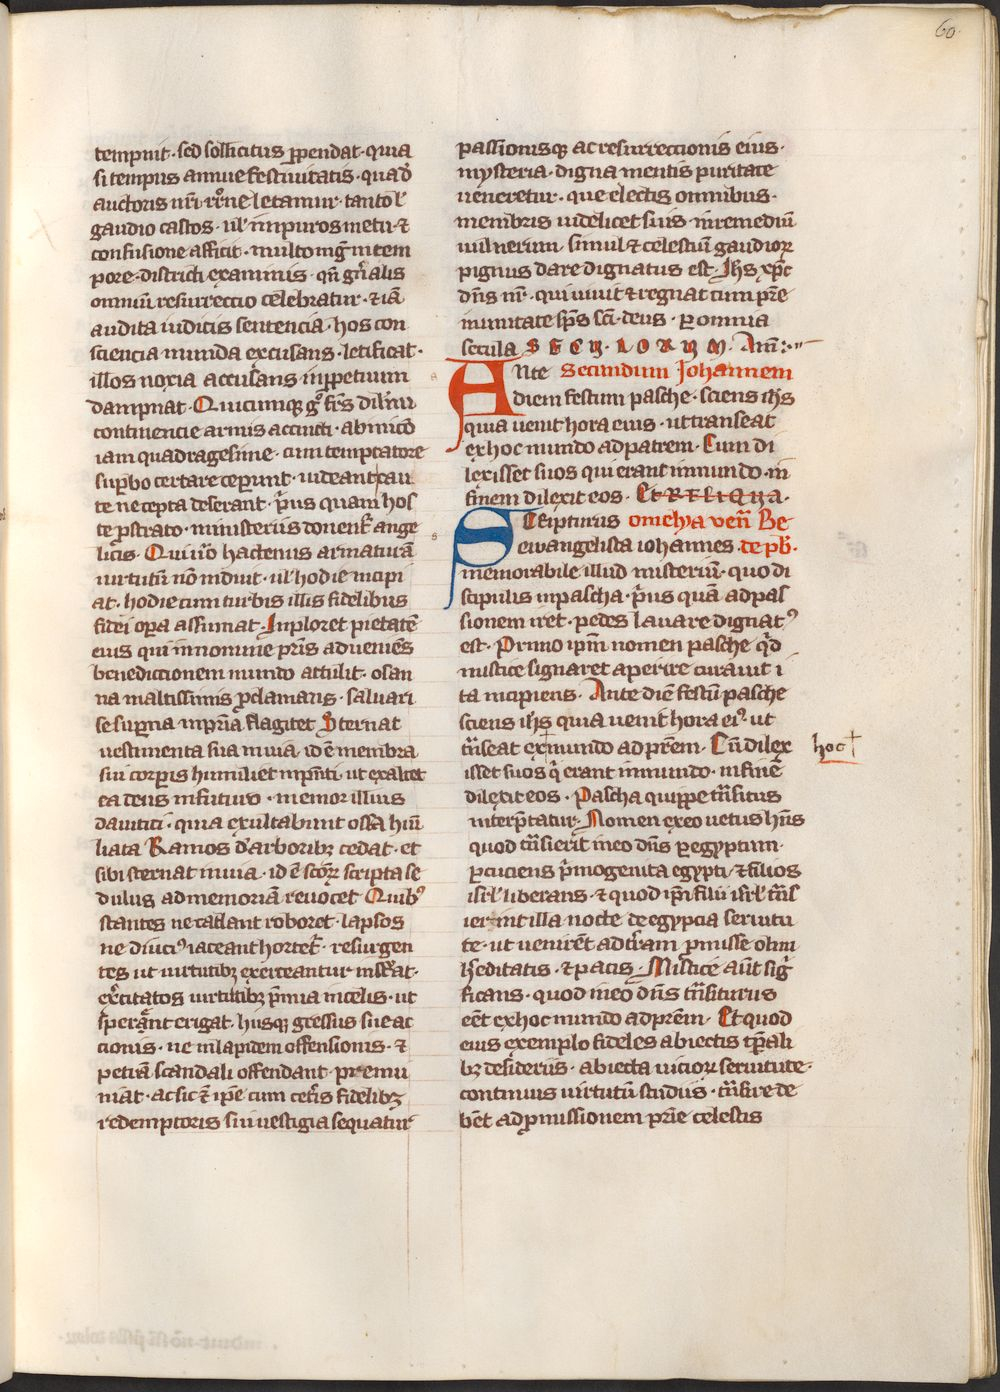 60.
tempnit · sed sollicitus ꝑpendat · quia
si tempus annue festiuitatis · qua dn̄i
auctoris nr̄i letamur · tanto
gaudio castos · ul̓ impuros metu · ⁊
confusione afficit · multo mg̅ in tem
pore · districti examinis · qn̄ gn̄alis
omniū resurrectio celebratur · ⁊ iā
audita iudicis sentencia · hos con
sciencia munda excusans · letificat ·
illos noxia accusans inꝑpetuum
dampnat · Quicumqꝫ g̊ fr̄s dil̄mi
continencie armis accincti · ab inicō
iam quadragesime · cum temptatore
suꝑbo certare ceperunt · uideant cau
te ne cepta deserant · p̄us quam hos
te ꝓstrato · ministeriis donent᷑ ange
licis · Qui u̓o hactenus armaturā
uirtutū nō induit · ul̓ hodie incipi
at · hodie cum turbis illis fidelibus
fidei oꝑa assumat · Inploret pietatē
eius qui in nomine pr̄is adueniēs
benedictionem mundo attulit · osan
na in altissimis ꝓclamans · saluari
se suꝑna in pr̄ia flagitet Sternat
uestimenta sua in uia · id ē membra
sui corꝑis humiliet in pn̄ti · ut exaltet
ea deus in futuro · memor illius
dauitici · quia exultabunt ossa hūi
liata Ramos d̓ arboribꝫ cedat · et
sibi sternat in uia · id ē scōꝝ scripta se
dulus ad memoriā reuocet Quibꝰ
stantes ne cadant roboret · lapsos
ne diuciꝰ iaceant hortet᷑ · resurgen
tes ut uirtutibꝫ exerceantur inst̓at ·
ex̓citatos uirtutibꝫ p̄mia in celis · ut
sperant erigat · husqꝫ gressus sue ac
cionis · ne in lapidem offensionis · ⁊
petrā scandali offendant · premu
niat · ac sic ⁊ ip̄e cum cet̓is fidelibꝫ
redemptoris sui uestigia sequatur
passionisqꝫ ac resurrectionis eius ·
mysteria · digna mentis puritate
ueneretur · que electis omnibus ·
membris uidelicet suis · in remediū
uulnerum · simul ⁊ celestiū gaudioꝝ
pignus dare dignatus est · Ihs xp̄c
dn̄s nr̄ · qui uiuit ⁊ regnat cum pr̄e
in unitate sp̄s sc̄i · deus · ꝑ omnia
secula SECULORUM. Am̄:
Ante Secundum Johannem
diem festum pasche · sciens ihs
quia uenit hora eius · ut transeat
ex hoc mundo ad patrem · Cum di
lexisset suos qui erant in mundo · in
finem dilexit eos · Et RELIQUA.
SCripturus omelya ven̄ Be
euuangelista iohannes · de pb̄.
memorabile illud misteriū · quo di
scipulis in pascha · p̄us quā ad pas
sionem iret · pedes lauare dignatꝰ
est · Primo ip̄m nomen pasche qd̓
mistice signaret aperire curauit i
ta incipiens · Ante diē festū pasche
sciens ihs quia uenit hora eiꝰ · ut
tn̄seat ex mundo ad pr̄em · Cū dilex
hoc†
isset suos q̓ erant in mundo · in finē
dilexit eos · Pascha quippe tn̄situs
interp̄tatur · Nomen ex eo uetus hn̄s
quod tn̄sierit in eo dn̄s ꝑ egyptum ·
ꝑcuciens p̄mogenita egypti · ⁊ filios
isrl̓ liberans · ⁊ quod ip̄i filii isrl̓ tn̄s
ierint illa nocte de egypcia seruitu
te · ut uenirēt ad t̓ram ꝓmisse olim
h̓editatis · ⁊ pacis · Mistice aūt sig̓
ficans · quod in eo dn̄s tn̄siturus
eēt ex hoc mundo ad pr̄em · Et quod
eius exemplo fideles abiectis tp̄ali
bꝫ desideriis · abiecta uicioꝝ seruitute ·
continuis uirtutū studiis · tn̄sire de
bēt ad ꝓmissionem pr̄ie celestis